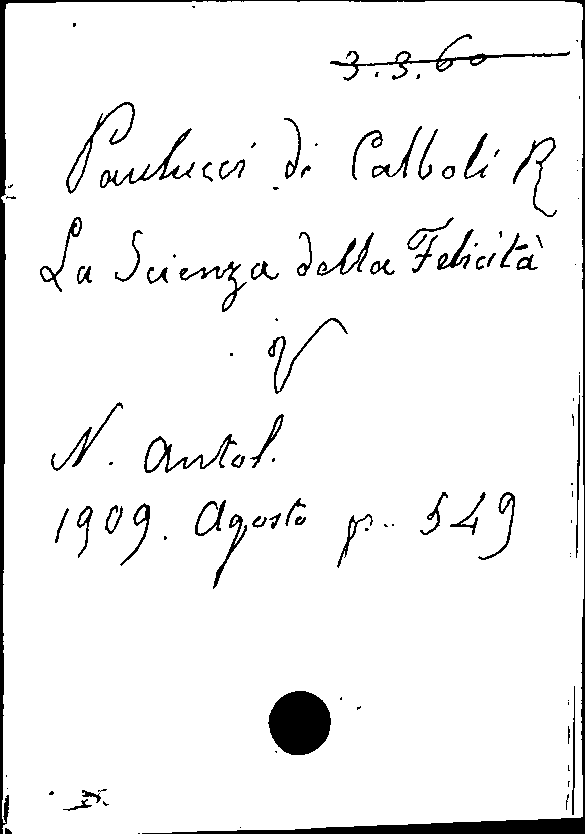 3.3.60
Paulucci di Calboli R
La Scienza della Felicità
V
N. Antol.
1909. Agosto p. 549